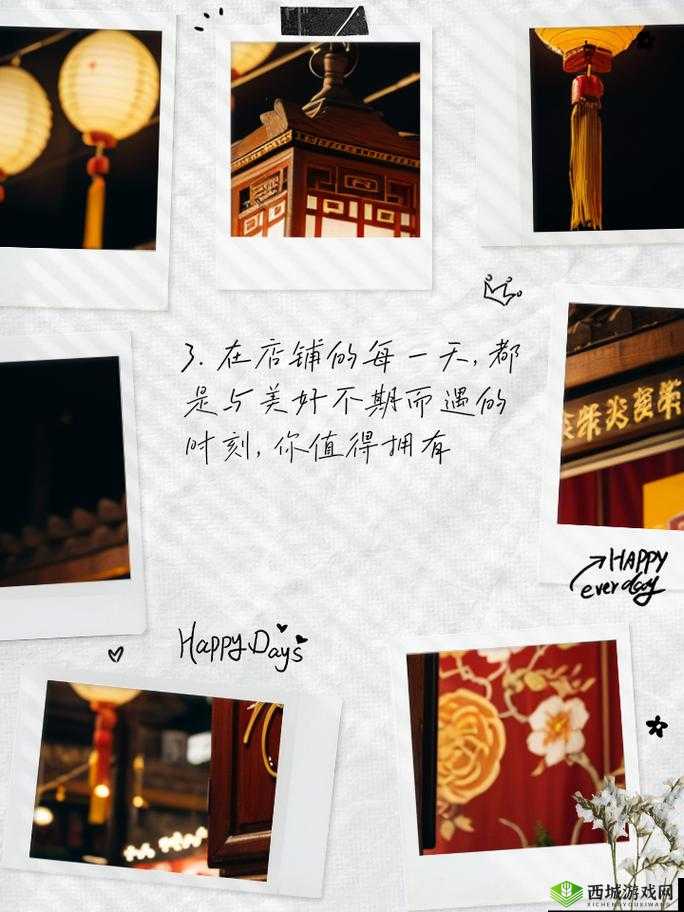 3. 在店铺的每一天, 都
是与美好不期而遇的
时刻, 你值得拥有
HAPPY
everday
Happy Days
西城游戏网
XICHENGYOUXIWANG